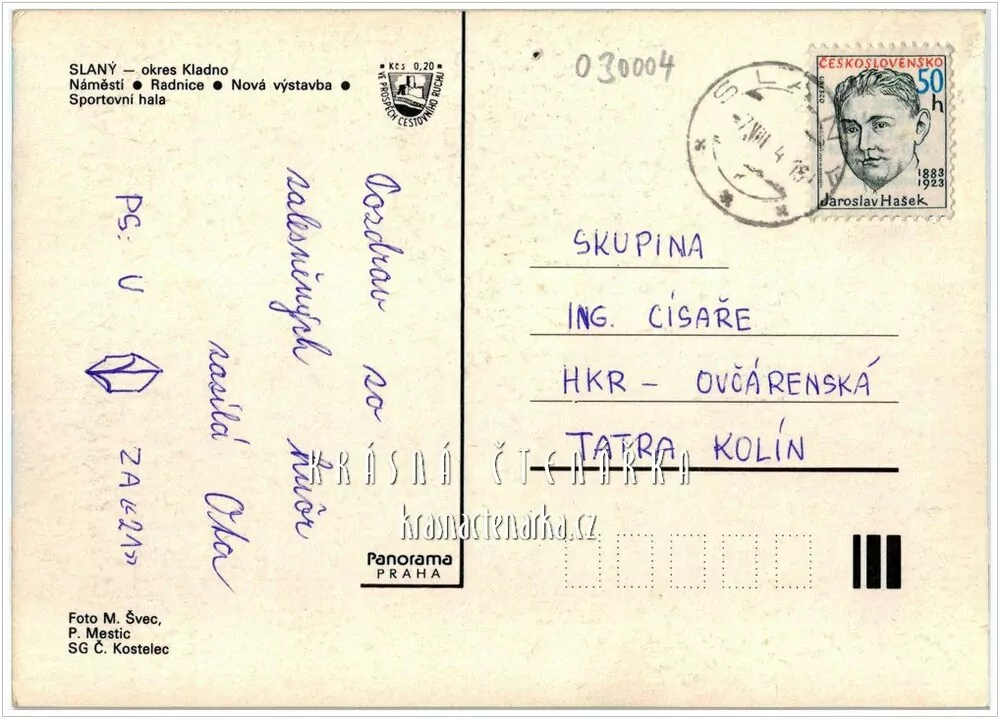 SLANÝ — okres Kladno
Náměstí ● Radnice ● Nová výstavba ●
Sportovní hala
Kčs 0,20
VE PROSPĚCH CESTOVNÍHO RUCHU
030004
SLANÝ
ČESKOSLOVENSKO
50 h
UNESCO
1883
1923
Jaroslav Hašek
Pozdrav so
zalesněných huôr
zasílá Ota
PS: U ZA «21»
SKUPINA
ING. CÍSAŘE
HKR - OVČÁRENSKÁ
TATRA KOLÍN
KRÁSNÁ ČTENÁŘKA
krasnactenarka.cz
Panorama
PRAHA
Foto M. Švec,
P. Mestic
SG Č. Kostelec